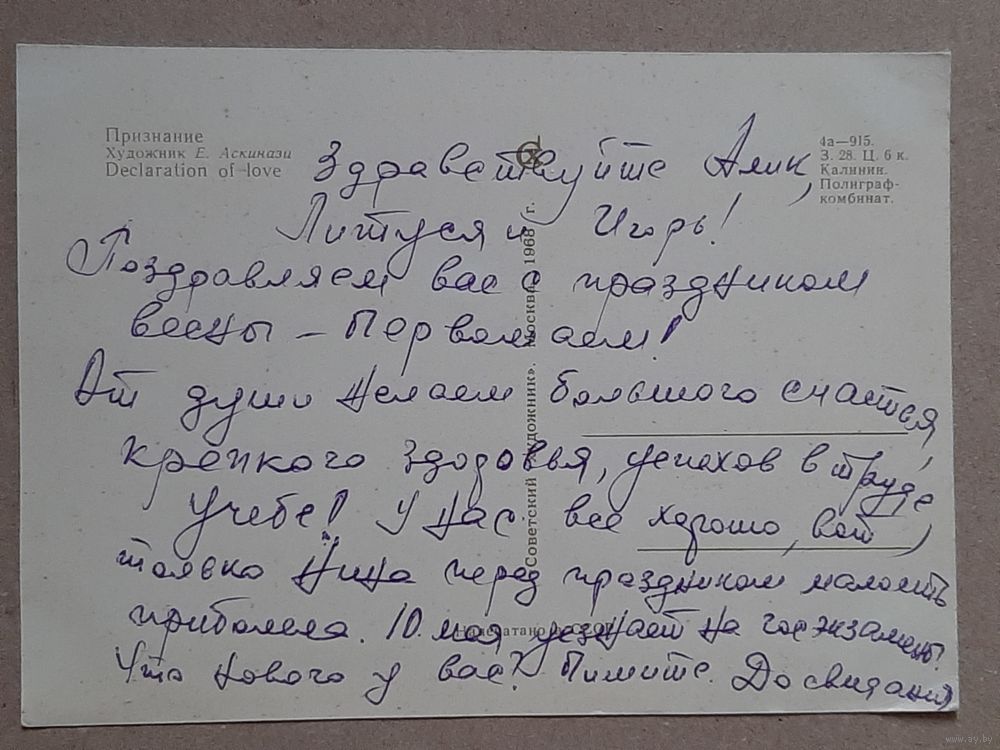 Признание
Художник Е. Аскинази
Declaration of love
4а—915.
З. 28. Ц. 6 к.
Калинин.
Полиграф-
комбинат.
Здравствуйте Алик,
Литуся и Игорь!
Поздравляем вас с праздником
весны – Первомаем!
От души желаем большого счастья,
крепкого здоровья, успехов в труде,
учебе! У нас все хорошо, вот
только Нина перед праздником малость
приболела. 10 мая уезжает на госэкзамены.
Что нового у вас? Пишите. До свидания
«Советский художник». Москва. 1968 г.
Напечатано в СССР
www.ay.by